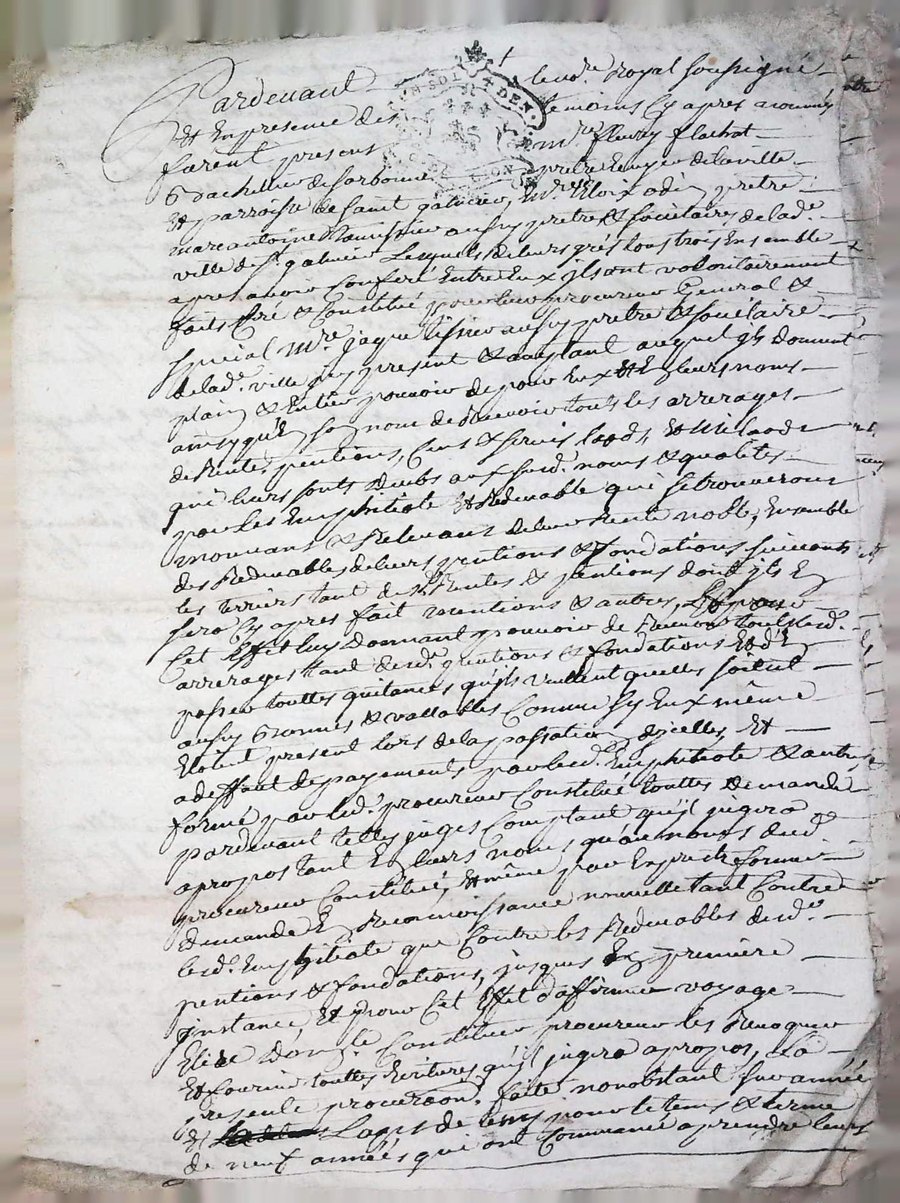 Pardevant le no.re Royal soussigné
Et En presence des temoins Cy apres nommés
furent presens m.re fleury flachat
Bachellier de sorbonne pretre Curé de la ville
Et parroisse de saint galmier, m.re
marc antoine aussy pretre & societaires de lad.e
ville de s.t galmier Lesquels de leurs grés tous trois Ensemble
apres avoir Conferé Entre Eux ils ont volontairement
faits Créé & Constitué pour leur procureur General &
special M.re jaque aussy pretre & societaire
de lad.e ville icy present & acceptant auquel ils donnent
plain & Entier pouvoir de pour Eux & En leurs noms
ainsy qu'En son nom de Recevoir touts les arrerages
de Rentes, pentions, Cens & servis laods, & milaods
que leurs sonts deubs aux susd. noms & qualités
par les Emphiteote & Redevable qui se trouveront
mouvant & Relevant de leur Rente noble, Ensemble
des Redevables de leurs pentions & fondations suivants
les terriers tant desd. Rentes & pentions dont ils En
sera Cy apres fait mentions & autres, & pour
Cet Effet luy Donnant pouvoir de Recevoir touts lesd.
arrerages tant desd. pentions & fondations Et d'En
passer touttes quitances qu'ils veullent quelles soient
aussy bonnes & vallables Comme sy Eux même
Etoient present lors de la passation d'icelles, Et
a deffaut de payements par lesd. Emphiteote & autres
formé par led. procureur Constitué touttes demande
pardevant telles juges Competant qu'il jugera
apropos tant En leurs noms, qu'au noms dud.
procureur Constitué, & même pour En former
demande En Reconnoissance nouvelle tant Contre
lesd. Emphiteote que Contre les Redevables desd.
pentions & fondations, jusques En premiere
instance, Et pour Cet Effet d'affirmer voyage
Elire Domi.le Constituer procureur les Revoquer
Et fournir touttes Ecritures qu'il jugera apropos, La
presente procuration faite nonobstant surannée
& Laps de tems pour le tems & terme
de neuf années qui ont Commancé a prendre leurs